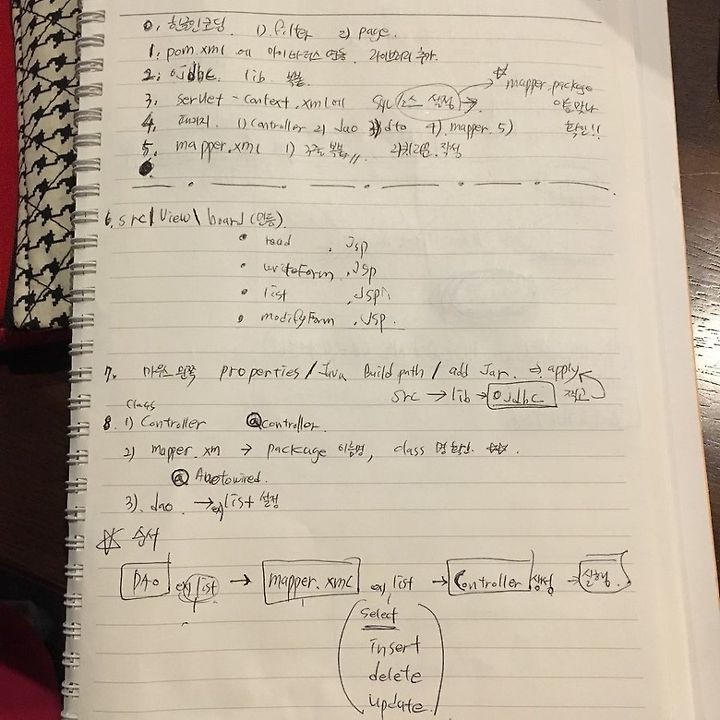 0. 한글인코딩. 1) filter 2) page.
1. pom.xml 에 마이바티스 연동, 라이브러리 추가.
2. ojdbc. lib 복붙.
3. servlet-context.xml에 소스 설정 → ☆ mapper.package
이름맞나
4. 패키지. 1) controller 2) dao 3) dto 4). mapper. 5) 확인!!
5. mapper.xml 1) 구조복붙 2) 쿼리문.작성
6. src/View\board (연동).
• read .Jsp
• writeForm .Jsp
• list .Jsp
• modifyForm .Jsp.
7. 마우스 왼쪽 properties / Java Build path / add Jar. ⇒ apply
src → lib → ojdbc 찍고
class
8. 1) Controller @controller.
2) mapper.xm → package 이름명, class 명 확인. ☆☆.
@ Autowired.
3). dao. → ex) list 설정
☆ 순서
DAO ex) list → mapper.xml ex) list → Controller 설정 → 실행.
select
insert
delete
update.